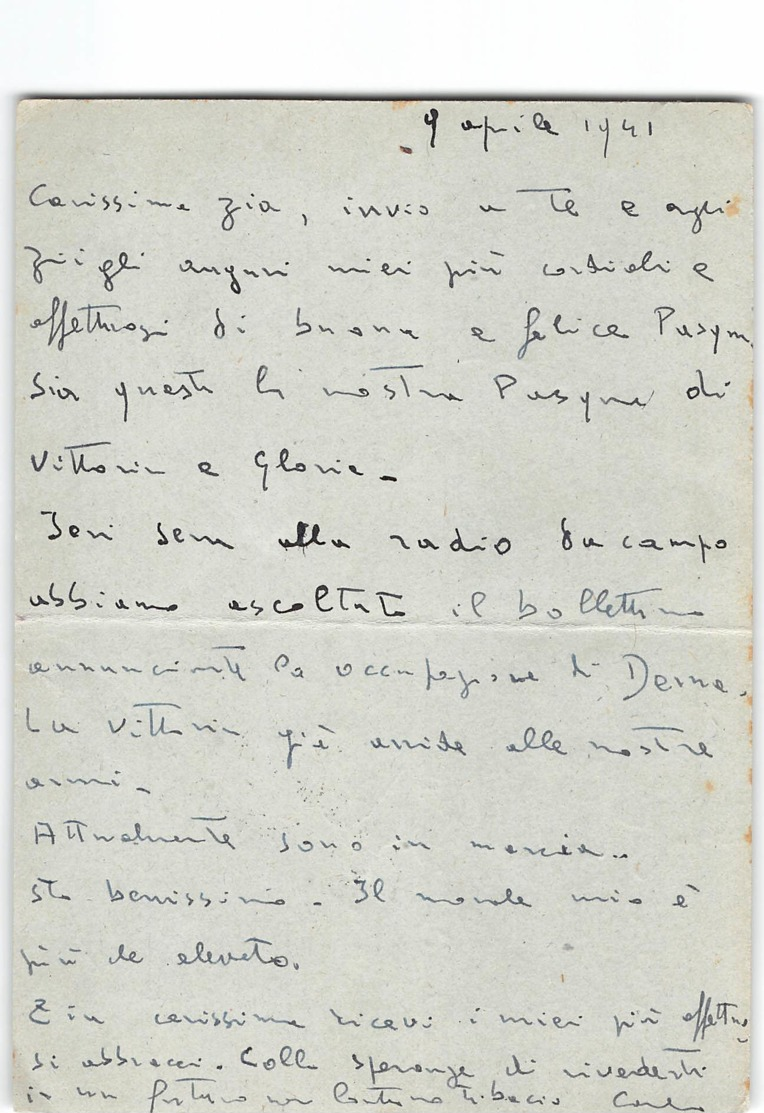 9 aprile 1941
Carissima zia, invio a te e agli
zii gli auguri miei più cordiali e
affettuosi di buona e felice Pasqua
Sia questa la nostra Pasqua di
Vittoria e Gloria -
Ieri sera alla radio da campo
abbiamo ascoltato il bollettino
annunciante la occupazione di Derna.
La Vittoria già arride alle nostre
armi -
Attualmente sono in marcia..
sto benissimo. Il morale mio è
più che elevato.
Zia carissima ricevi i miei più affettuo-
si abbracci. Colla speranza di rivederti
in un futuro non lontano ti bacio Carlo